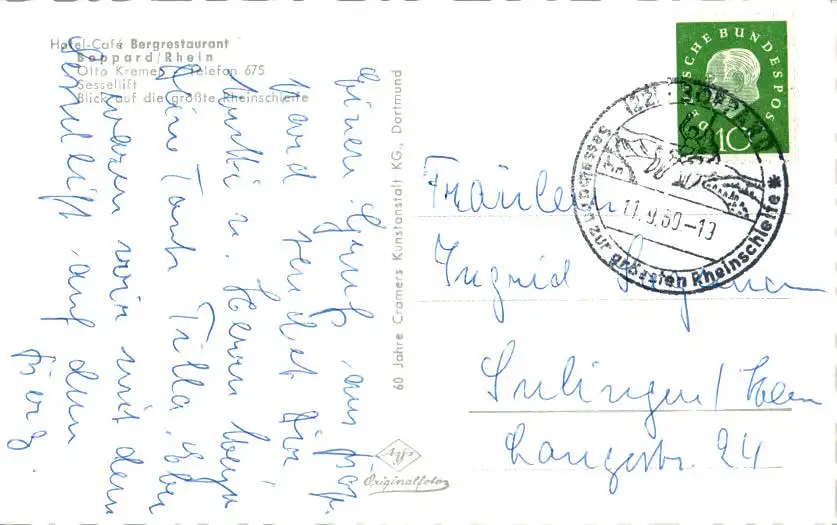 Hotel-Café Bergrestaurant
Boppard/Rhein
Otto Kremer Telefon 675
Sessellift
Blick auf die größte Rheinschleife
Einen Gruß aus Bop-
pard sendet Dir
Mutti u. Herrn
Tante Tilla. Eben
waren wir mit dem
Sessellift auf dem
Berg.
60 Jahre Cramers Kunstanstalt KG., Dortmund
Agfa
Originalfoto
DEUTSCHE BUNDESPOST
10
(22) BOPPARD
11.9.60.-19
Sesselbahn zur größten Rheinschleife *
Fräulein
Ingrid
Sulingen/
Langestr. 24